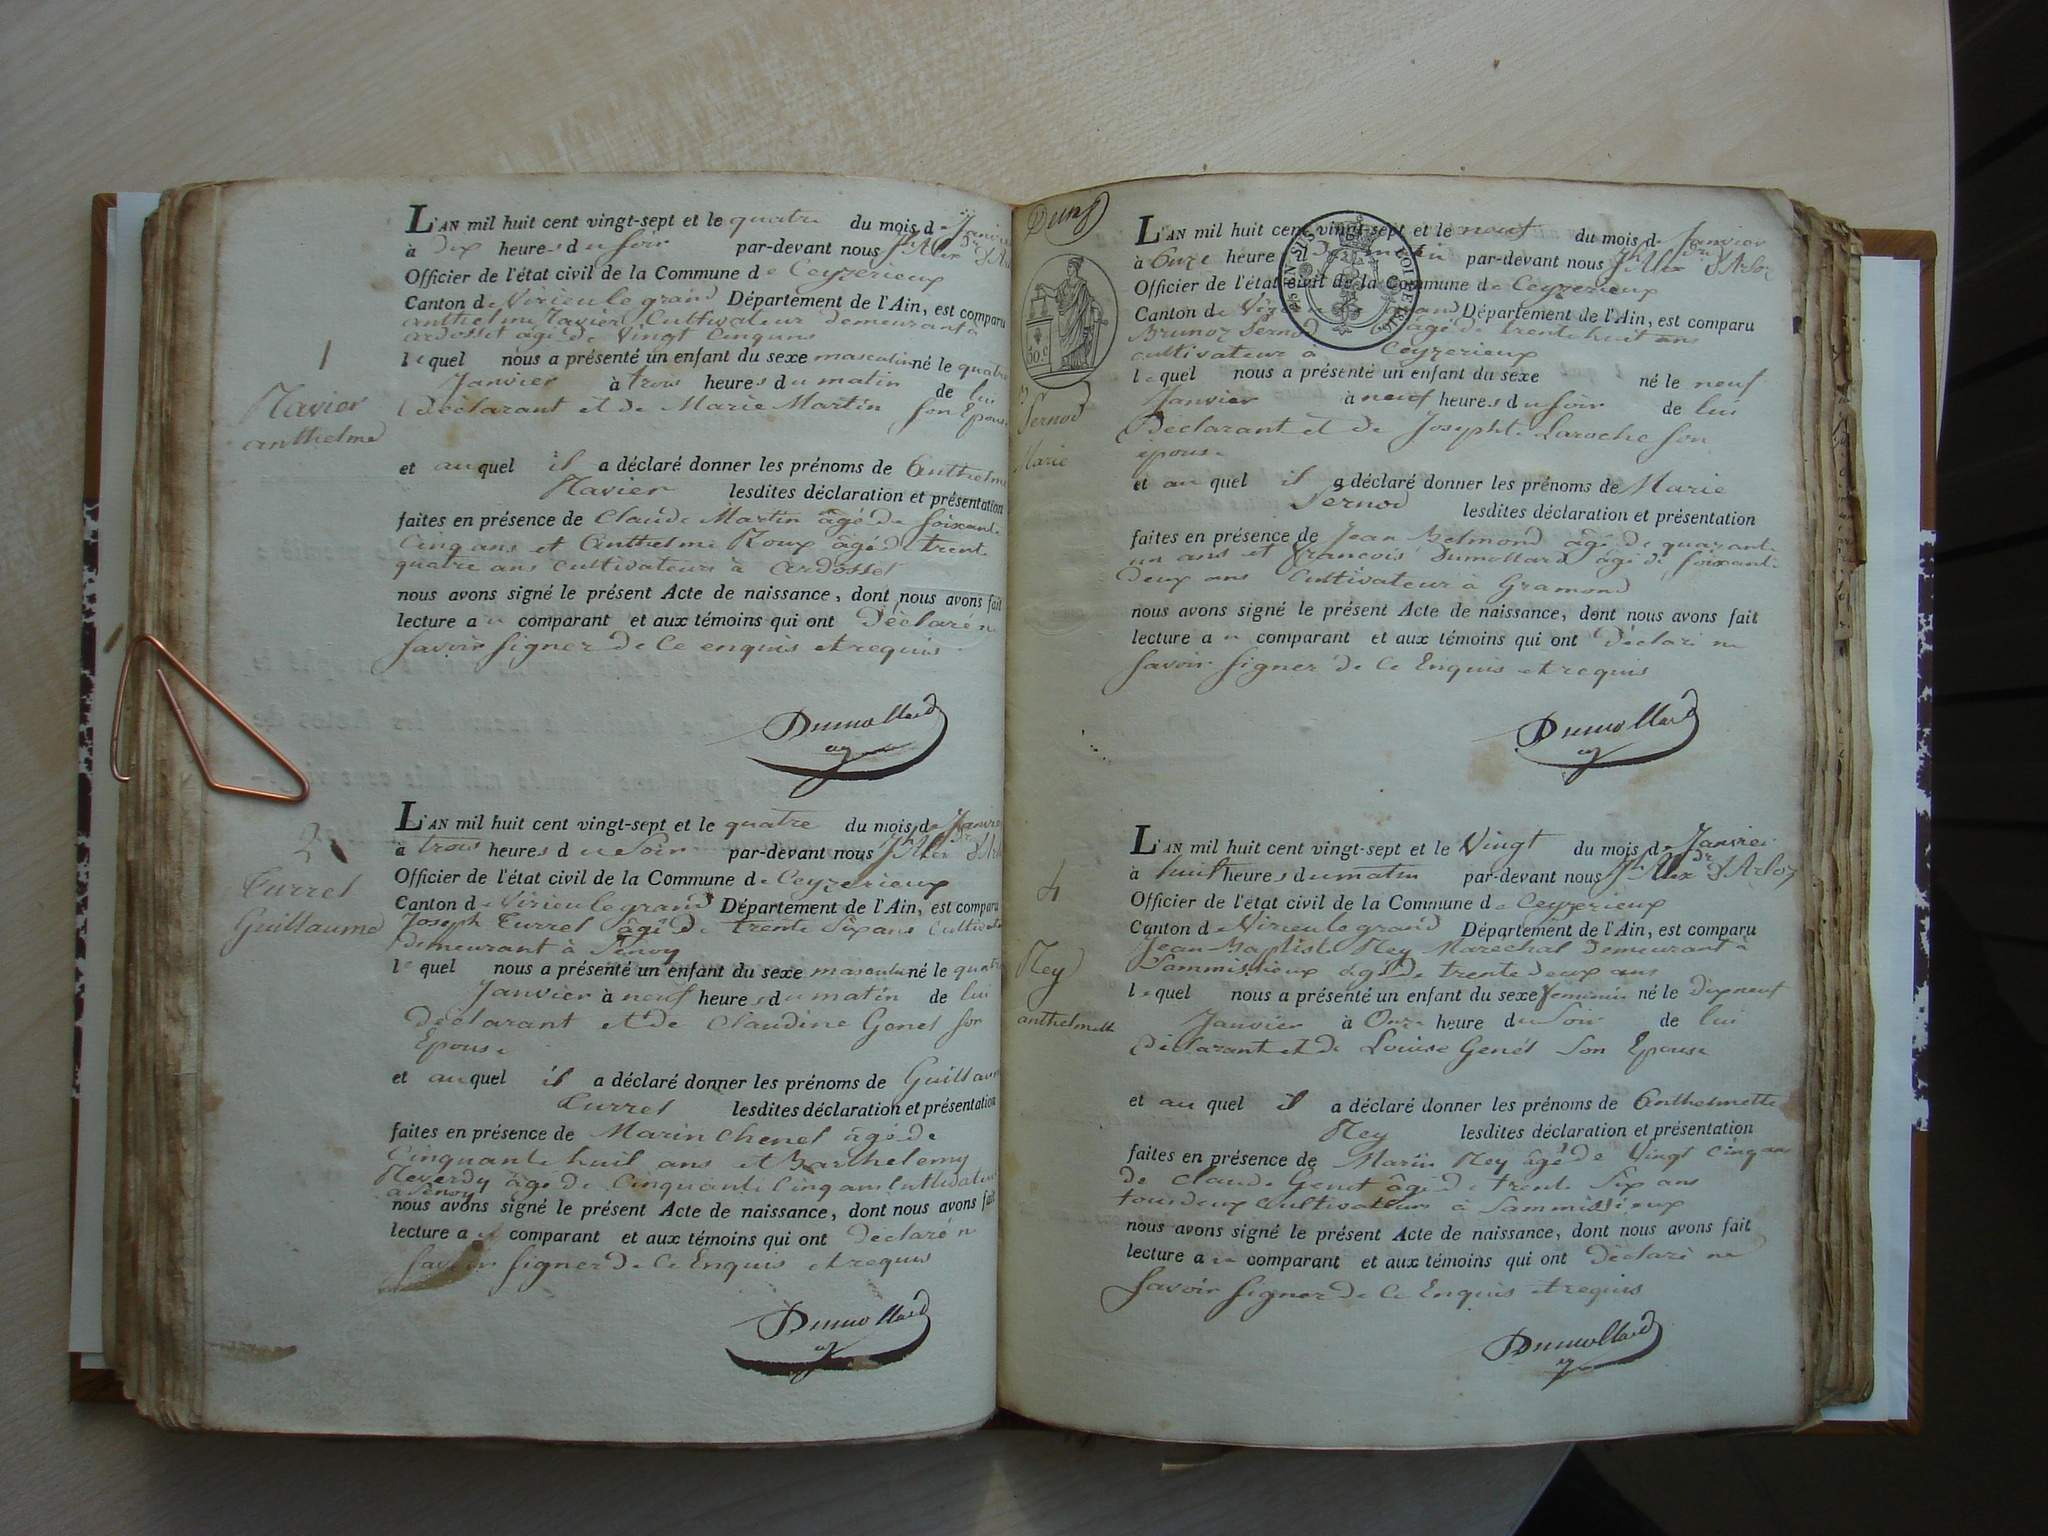 L'AN mil huit cent vingt-sept et le quatre du mois de Janvier
à dix heures du soir par-devant nous Jh Alex dr d'Arloz
Officier de l'état civil de la Commune de Ceyzerieux
Canton de Virieu le grand Département de l'Ain, est comparu
anthelme Navier Cultivateur demeurant à
ardosset âgé de Vingt Cinq ans
1
lequel nous a présenté un enfant du sexe masculin né le quatre
Janvier à trois heures du matin de lui
Navier
Déclarant et de Marie Martin son Epouse
anthelme
et auquel il a déclaré donner les prénoms de Anthelme
Navier lesdites déclaration et présentation
faites en présence de Claude Martin âgé de soixante
Cinq ans et Anthelme Roux âgé de trente
quatre ans cultivateurs à Ardosset
nous avons signé le présent Acte de naissance, dont nous avons fait
lecture au comparant et aux témoins qui ont Déclaré ne
savoir signer de Ce enquis et requis
Dumollard
L'AN mil huit cent vingt-sept et le quatre du mois de Janvier
2
à trois heures du Soir par-devant nous Jh Alex dr d'Arloz
Officier de l'état civil de la Commune de Ceyzerieux
Turrel
Canton de Virieu le grand Département de l'Ain, est comparu
Guillaume
Joseph Turrel âgé de trente Six ans Cultivateur
demeurant à Senoy
lequel nous a présenté un enfant du sexe masculin né le quatre
Janvier à neuf heures du matin de lui
déclarant et de Claudine Genet son
Epouse
et auquel il a déclaré donner les prénoms de Guillaume
Turrel lesdites déclaration et présentation
faites en présence de Marin Chenet âgé de
Cinquante huit ans et Barthelemy
Reverdy âgé de Cinquante Cinq ans Cultivateurs
à Senoy
nous avons signé le présent Acte de naissance, dont nous avons fait
lecture au comparant et aux témoins qui ont déclaré ne
savoir signer de Ce Enquis et requis
Dumollard
Deux
L'AN mil huit cent vingt-sept et le neuf du mois de Janvier
à Onze heure par-devant nous Jh Alex dr d'Arloz
Officier de l'état civil de la Commune de Ceyzerieux
Canton de Département de l'Ain, est comparu
Brunoz Sernod âgé de trente huit ans
cultivateur à Ceyzerieux
50.c
lequel nous a présenté un enfant du sexe né le neuf
3
Janvier à neuf heures du soir de lui
Sernod
Déclarant et de Josephte Laroche son
Marie
épouse
et auquel il a déclaré donner les prénoms de Marie
Sernod lesdites déclaration et présentation
faites en présence de Jean Belmond âgé de quarante
un ans et francois Dumollard âgé de soixante
deux ans Cultivateur à Gramond
nous avons signé le présent Acte de naissance, dont nous avons fait
lecture au comparant et aux témoins qui ont Déclaré ne
savoir signer de Ce Enquis et requis
Dumollard
L'AN mil huit cent vingt-sept et le Vingt du mois de Janvier
à huit heures du matin par-devant nous Jh Alex dr d'Arloz
4
Officier de l'état civil de la Commune de Ceyzerieux
Canton de Virieu le grand Département de l'Ain, est comparu
Jean Baptiste Rey Marechal demeurant à
Rey
Sammissieux âgé de trente deux ans
lequel nous a présenté un enfant du sexe feminin né le dix neuf
anthelmette
Janvier à Onze heure du Soir de lui
Déclarant et de Louise Genet Son Epouse
et auquel il a déclaré donner les prénoms de Anthelmette
Rey lesdites déclaration et présentation
faites en présence de Marin Rey âgé de Vingt Cinq ans
de Claude Genet âgé de trente Six ans
tous deux Cultivateurs à Sammissieux
nous avons signé le présent Acte de naissance, dont nous avons fait
lecture au comparant et aux témoins qui ont Déclaré ne
savoir signer de Ce Enquis et requis
Dumollard